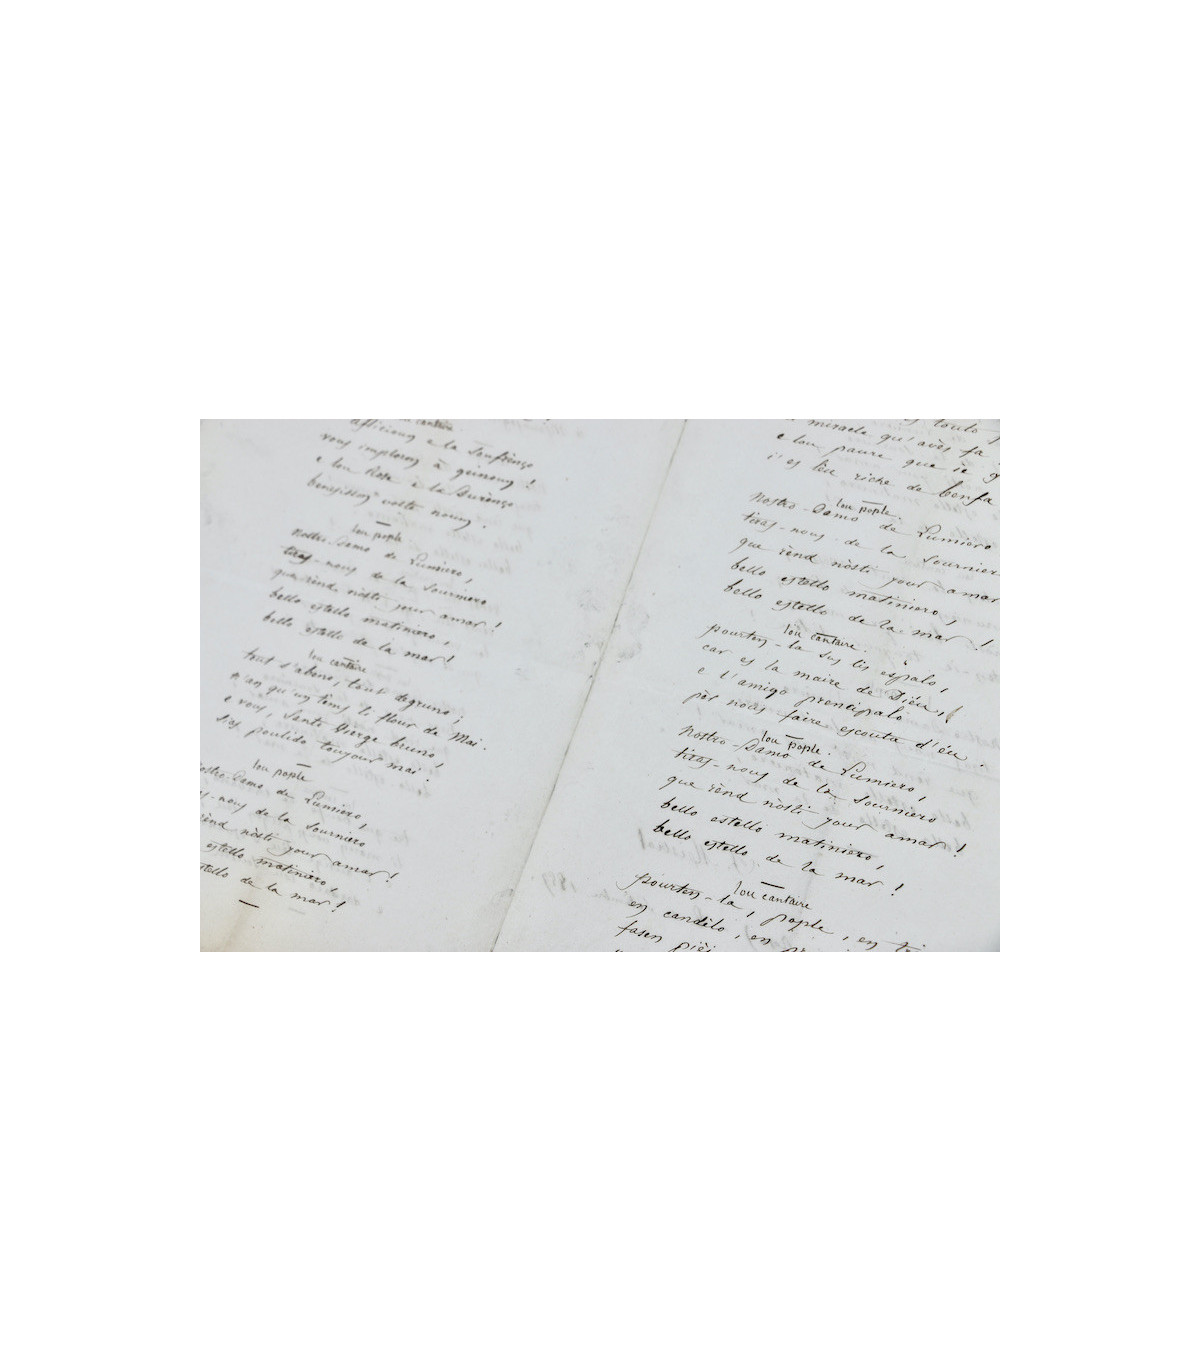 lou cantaire
aflicioun e la Soufrènço
vous imploron à geinoun !
e lou Rose e la Durènço
benesisson voste noum.
lou pople
Nostro-Damo de Lumiero,
tiras-nous de la sourniero
que rènd nòsti jour amar !
bello estello matiniero,
bello estello de la mar !
lou cantaire
tout s'abeno, tout degruno ;
n'an qu'un tèms li flour de Mai.
e vous, Santo Vierge bruno,
sies poulido toujour mai.
lou pople
Nostro-Damo de Lumiero,
-nous de la sourniero
rènd nòsti jour amar !
estello matiniero,
estello de la mar !
touto
miracle qu'avès fa
e lou paure que ie
i'es lèu riche de benfa
lou pople.
Nostro-Damo de Lumiero
tiras-nous de la sournier
que rènd nòsti jour amar
bello estello matiniero,
bello estello de la mar !
lou cantaire.
pourten-la sus lis espalo,
car es la maire de Diéu,
e l'amigo principalo
pèr nous faire escouta d'éu.
lou pople.
Nostro-Damo de Lumiero,
tiras-nous de la sourniero
que rènd nòsti jour amar !
bello estello matiniero,
bello estello de la mar !
lou cantaire
pourten-la, pople, en
en candèlo, en
fasen